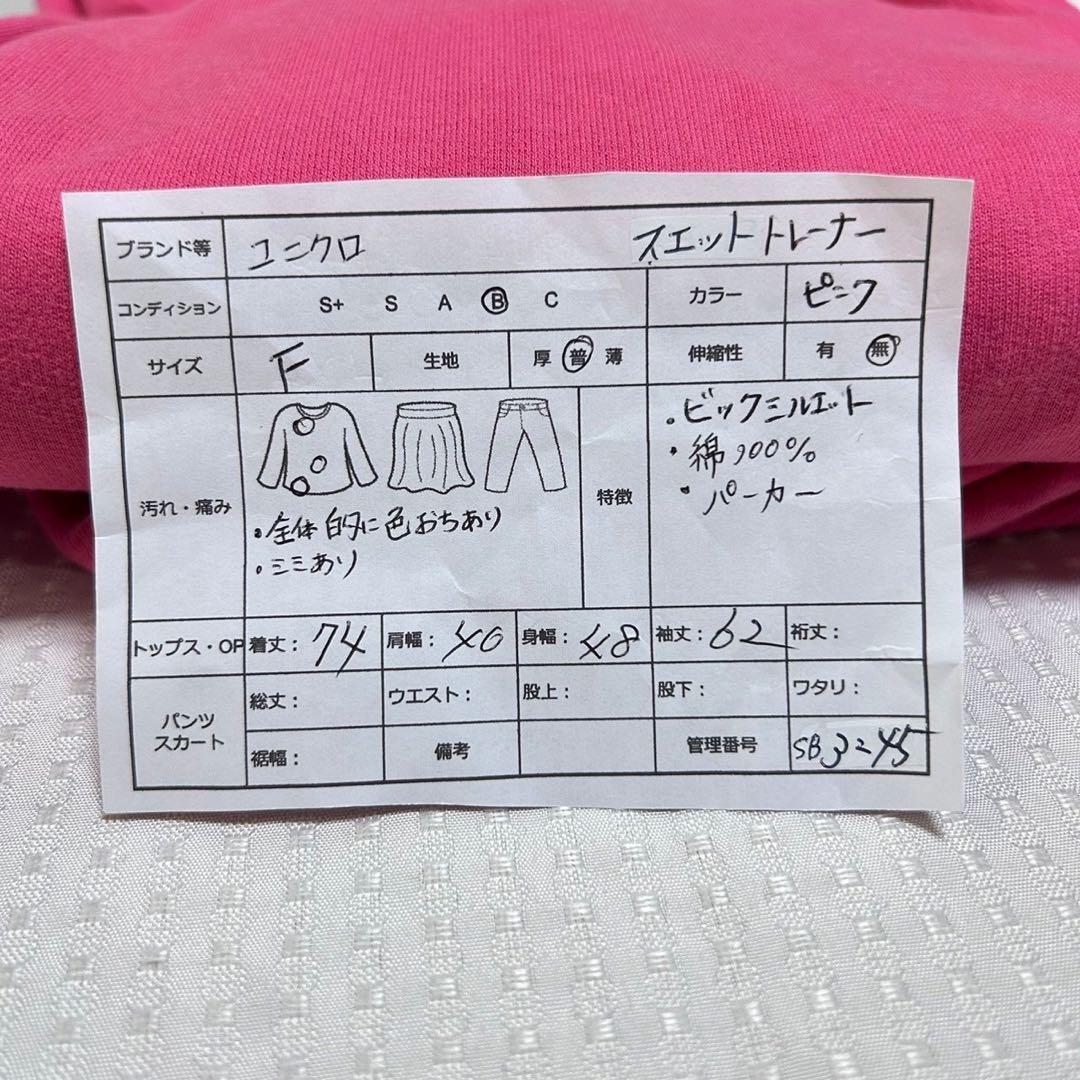 ブランド等 ユニクロ スエットトレーナー
コンディション S+ S A B C カラー ピンク
サイズ F 生地 厚 普 薄 伸縮性 有 無
汚れ・痛み
・全体的に色おちあり
・ミミあり
特徴
・ビックシルエット
・綿100%
・パーカー
トップス・OP 着丈：74 肩幅：40 身幅：48 袖丈：62 裄丈：
パンツ
スカート
総丈： ウエスト： 股上： 股下： ワタリ：
裾幅： 備考 管理番号 SB3-45